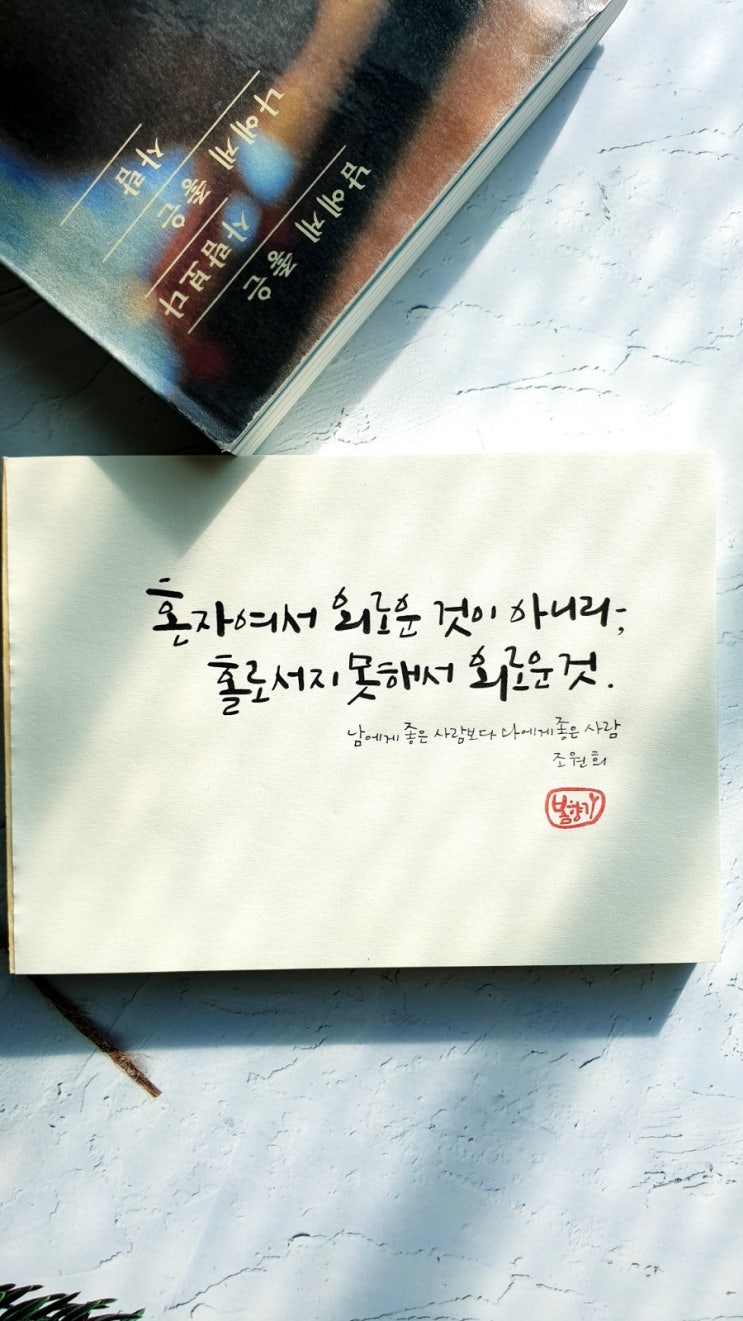 남에게 좋은
사람보다
나에게 좋은
사람
혼자여서 외로운 것이 아니라,
홀로서지 못해서 외로운 것.
남에게 좋은 사람보다 나에게 좋은 사람
조원희
봄향기